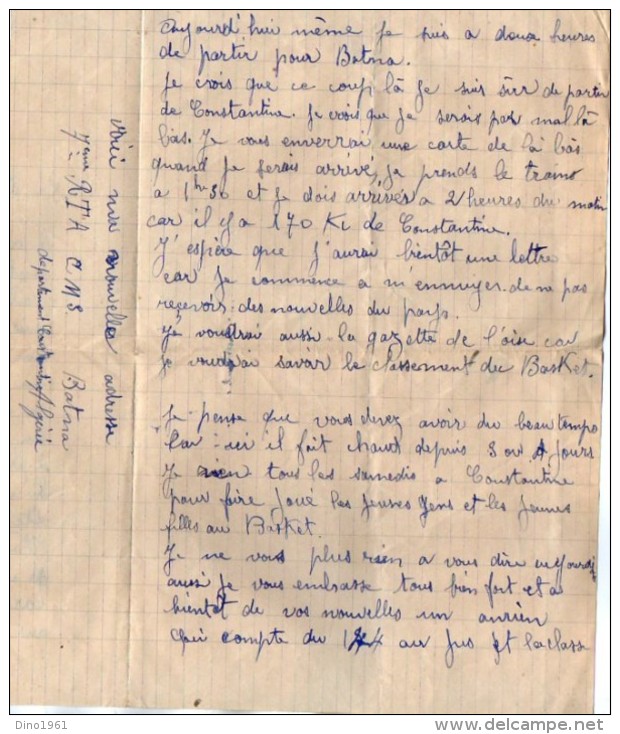 aujourd'hui même je suis a deux heures
de partir pour Batna.
Je crois que ce coup là je suis sûr de partir
de Constantine. Je crois que je serais pas mal là
bas. Je vous enverrai une carte de là bas
quand je serais arrivé, je prends le train
a 1h30 et je dois arrivés a 2 heures du matin
car il y a 170 K de Constantine.
J'espère que j'aurai bientôt une lettre
car je commence a m'ennuyer de ne pas
reçevoir des nouvelles du pays.
Je voudrai aussi la gazette de l'oise car
je voudrai savoir le classement du Basket.
Je pense que vous devez avoir du beau temps
Car ici il fait chaud depuis 3 ou 4 jours
Je vien tous les samedis a Constantine
pour faire joué les jeunes gens et les jeunes
filles au Basket.
Je ne vois plus rien a vous dire aujourd
aussi je vous embrasse tous bien fort et a
bientôt de vos nouvelles un ancien
Qui compte du 144 au Jus et la classe
Voici ma nouvelle adresse
7ème R.T.A C.M.S Batna
departement Constantine Algérie
Dino1961
www.delcampe.net